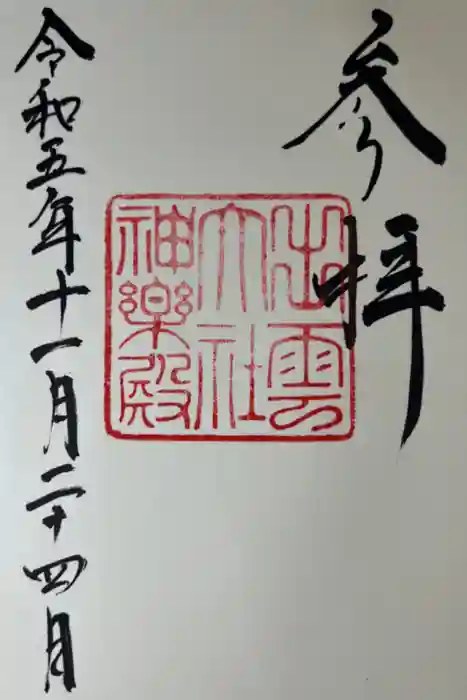 参拝
出雲
大社
神樂殿
令和五年十一月二十四月